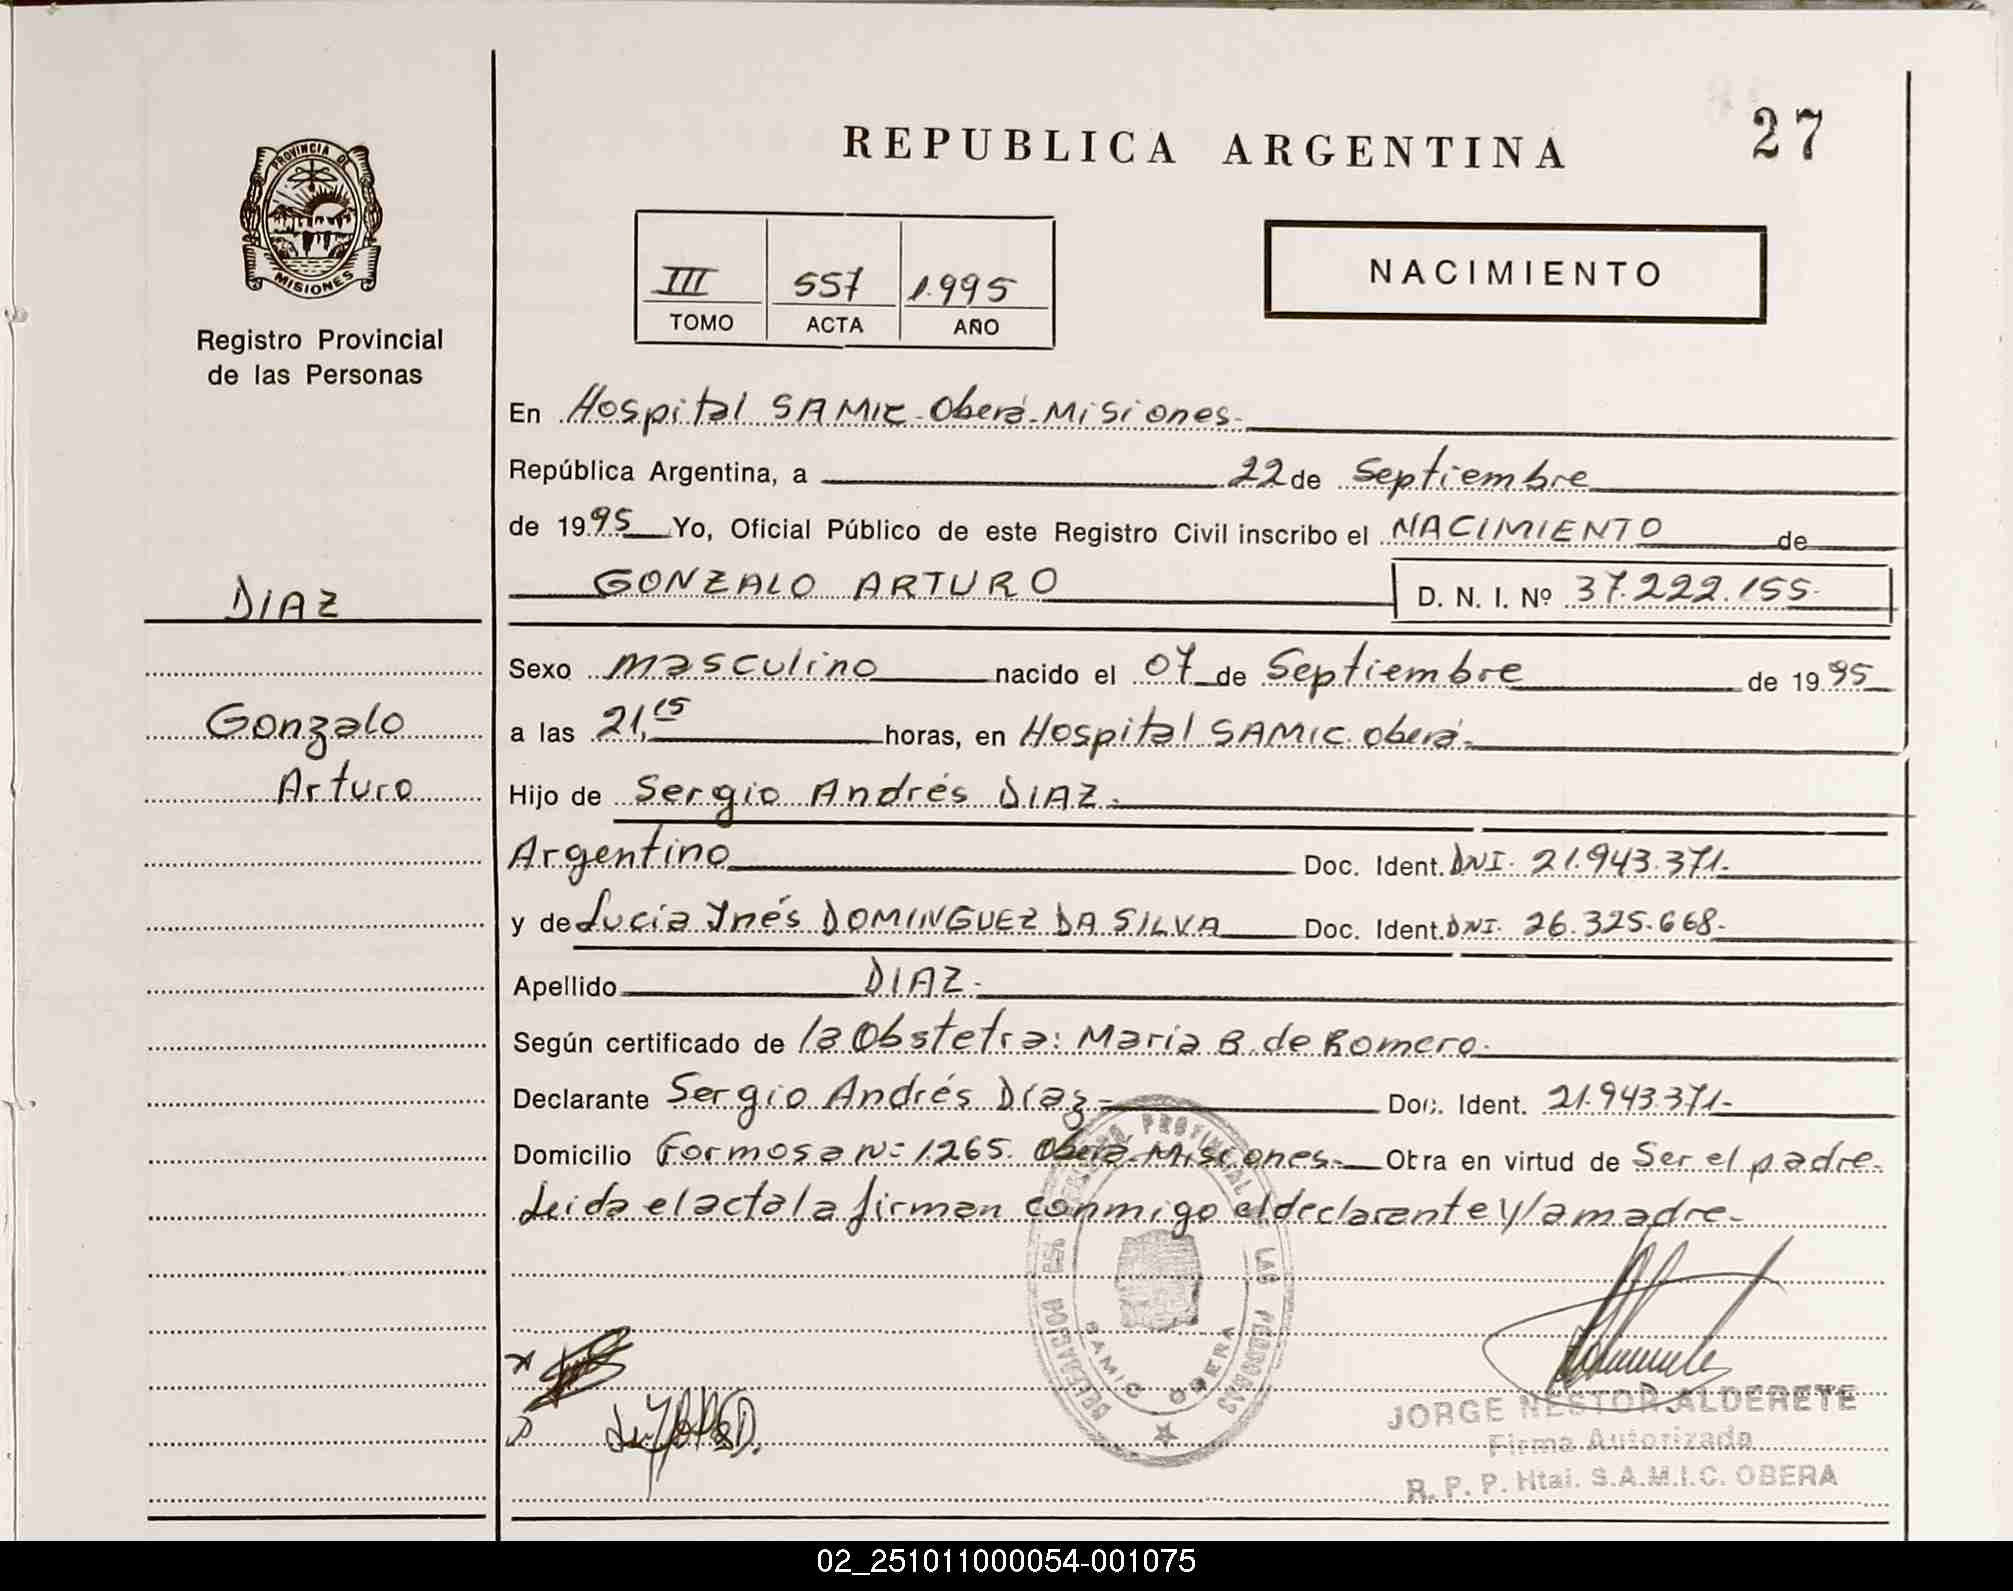 27
REPUBLICA ARGENTINA
PROVINCIA DE
MISIONES
Registro Provincial
de las Personas
III 557 1.995
TOMO ACTA AÑO
NACIMIENTO
En Hospital SAMIC - Oberá - Misiones -
República Argentina, a 22 de Septiembre
de 1995 Yo, Oficial Público de este Registro Civil inscribo el NACIMIENTO de
GONZALO ARTURO D. N. I. Nº 37.222.155-
DIAZ
Gonzalo
Arturo
Sexo masculino nacido el 07 de Septiembre de 1995
a las 21,15 horas, en Hospital SAMIC. Oberá -
Hijo de Sergio Andrés DIAZ -
Argentino Doc. Ident. DNI. 21.943.371-
y de Lucía Inés DOMINGUEZ DA SILVA Doc. Ident. DNI. 26.325.668-
Apellido DIAZ -
Según certificado de la Obstetra: María B. de Romero.
Declarante Sergio Andrés Díaz - Doc. Ident. 21.943.371-
Domicilio Formosa Nº 1265. Oberá - Misiones - Obra en virtud de Ser el padre.
Leida el acta la firman conmigo el declarante y la madre -
SAMIC OBERA
JORGE NESTOR ALDERETE
Firma Autorizada
R. P. P. Htal. S.A.M.I.C. OBERA
02_251011000054-001075